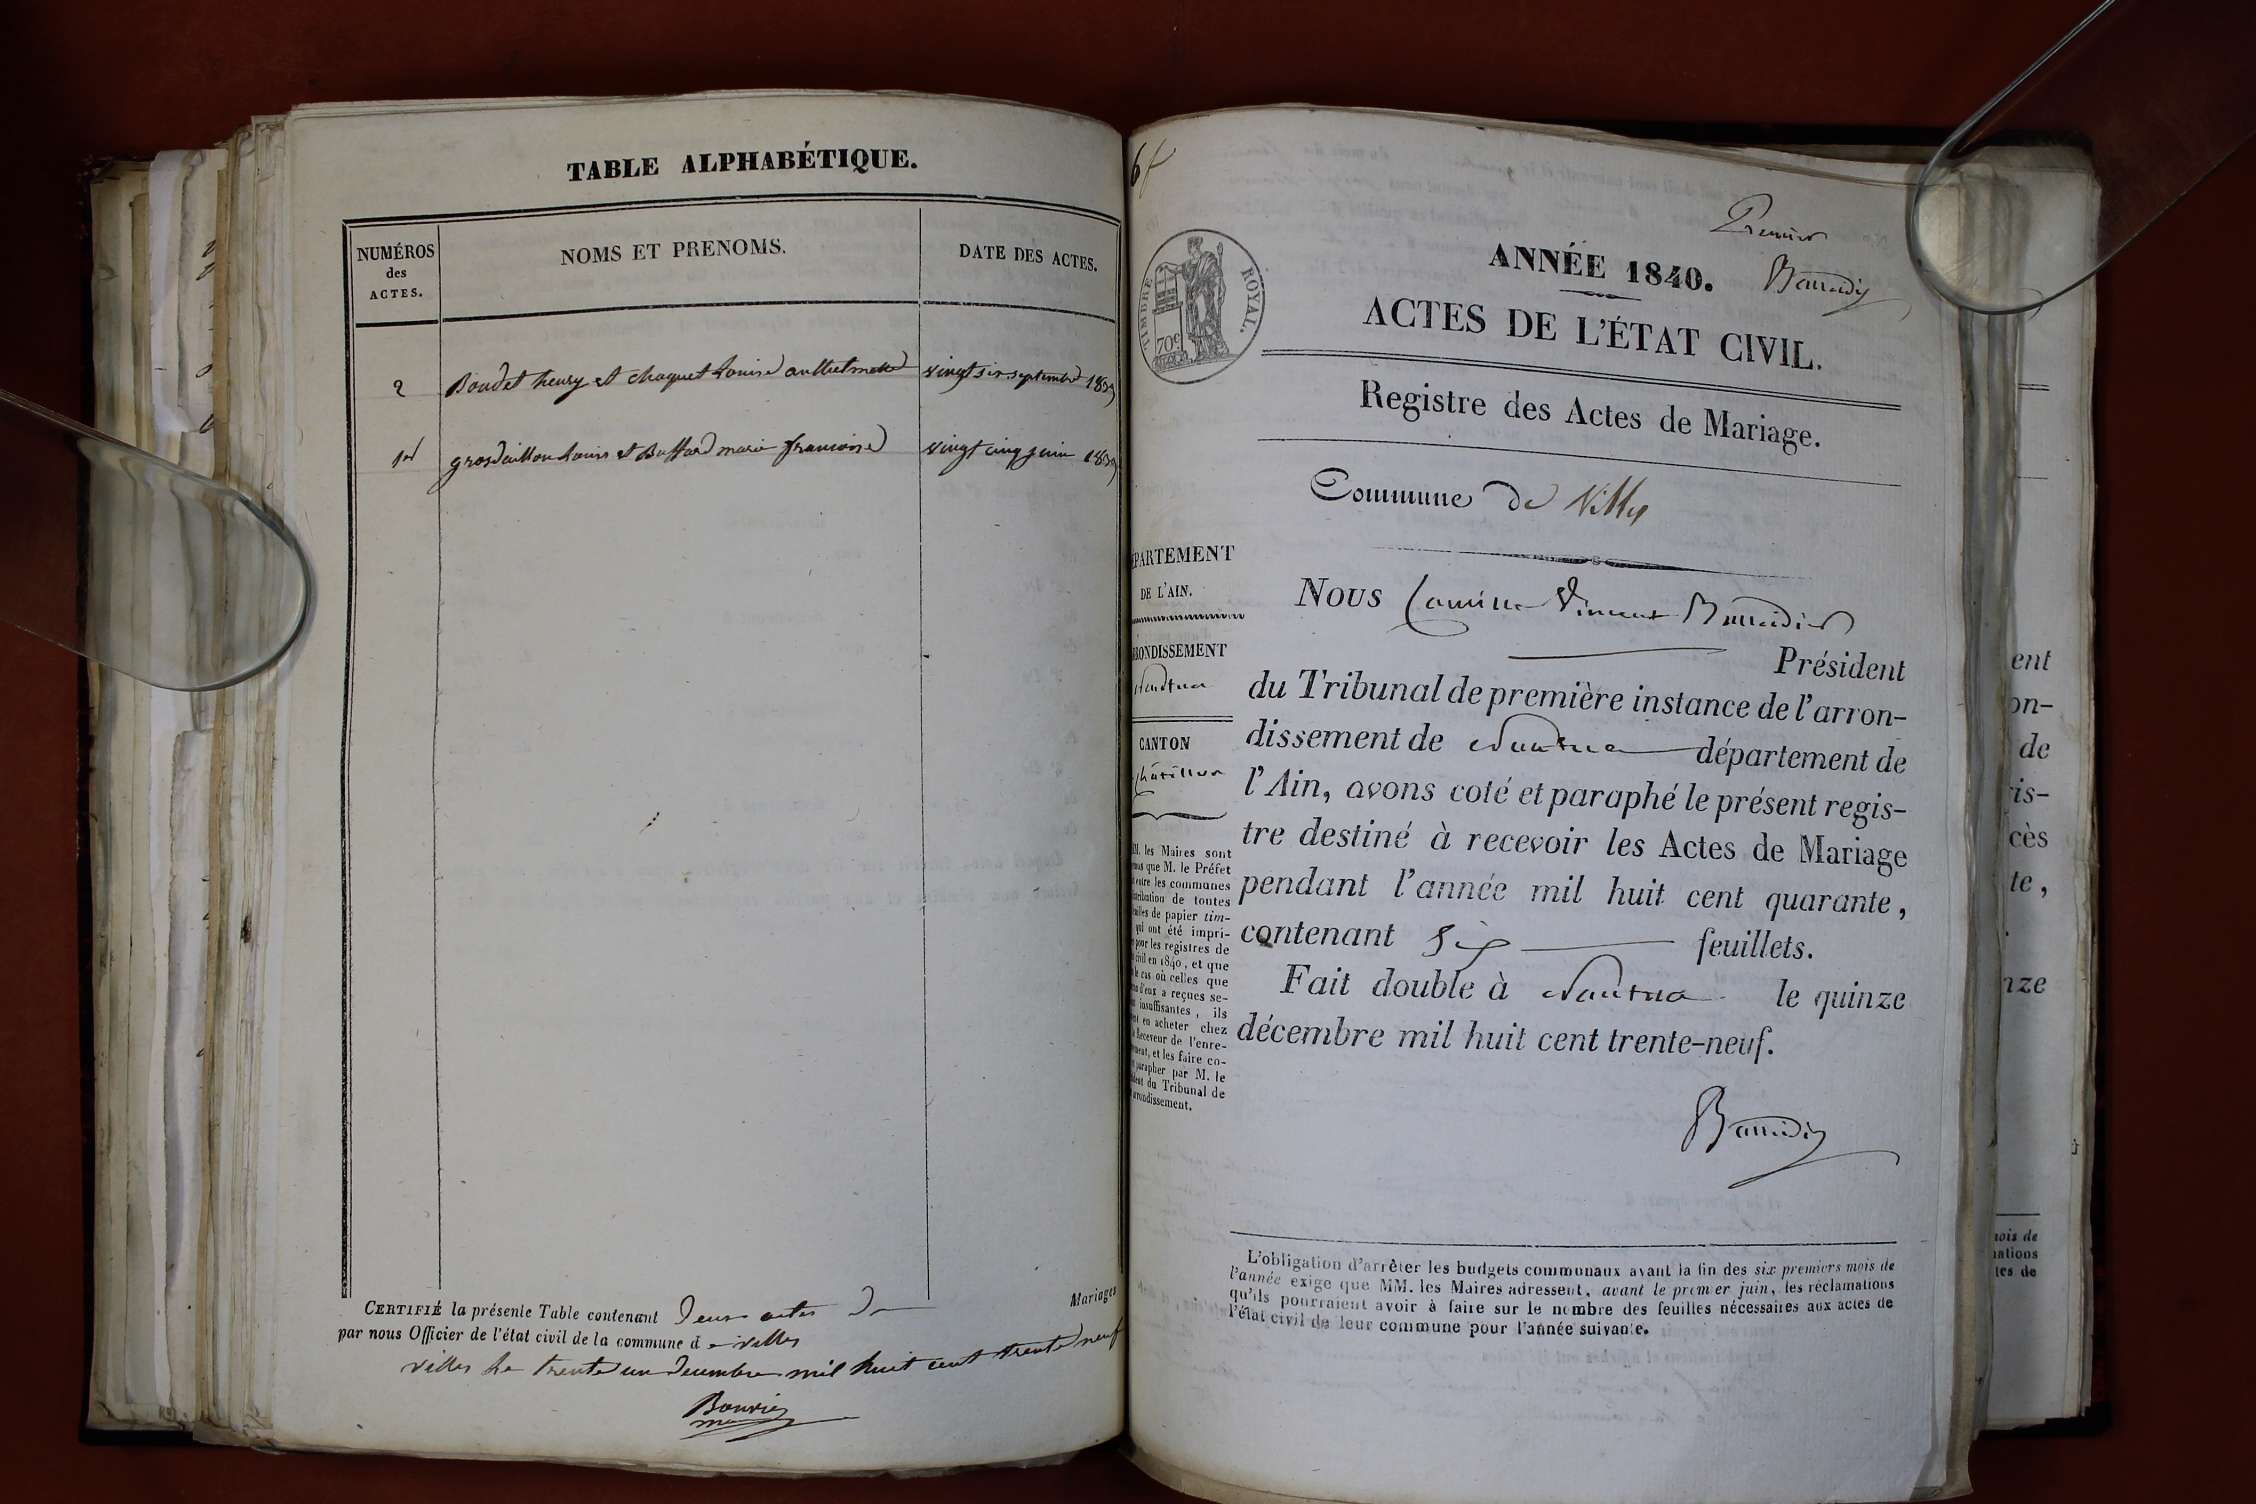 TABLE ALPHABÉTIQUE.
NUMÉROS
des
ACTES.
NOMS ET PRENOMS.
DATE DES ACTES.
2 Boudet henry et Chaquet Louise vingt six septembre 1839
1er grosdaillon Louis et Buffard marie francoise vingt cinq juin 1839
CERTIFIÉ la présente Table contenant deux actes de Mariages
par nous Officier de l'état civil de la commune d e villes
villes Le trente un decembre mil huit cent trente neuf
Bouvier
Premier
ANNÉE 1840.
TIMBRE ROYAL.
70c
ACTES DE L'ÉTAT CIVIL.
Registre des Actes de Mariage.
Commune de Villes
PARTEMENT
DE L'AIN.
ONDISSEMENT
Nantua
CANTON
Châtillon
les Maires sont
que M. le Préfet
les communes
de toutes
de papier tim-
qui ont été impri-
pour les registres de
civil en 1840, et que
le cas où celles que
d'eux a reçues se-
insuffisantes, ils
en acheter chez
Receveur de l'enre-
et les faire co-
parapher par M. le
du Tribunal de
Nous Camille Vincent
Président
du Tribunal de première instance de l'arron-
dissement de Nantua département de
l'Ain, avons coté et paraphé le présent regis-
tre destiné à recevoir les Actes de Mariage
pendant l'année mil huit cent quarante,
contenant six feuillets.
Fait double à Nantua le quinze
décembre mil huit cent trente-neuf.
L'obligation d'arrêter les budgets communaux avant la fin des six premiers mois de
l'année exige que MM. les Maires adressent, avant le premier juin, les réclamations
qu'ils pourraient avoir à faire sur le nombre des feuilles nécessaires aux actes de
l'état civil de leur commune pour l'année suivante.
ent
on-
de
is-
cès
te,
nze